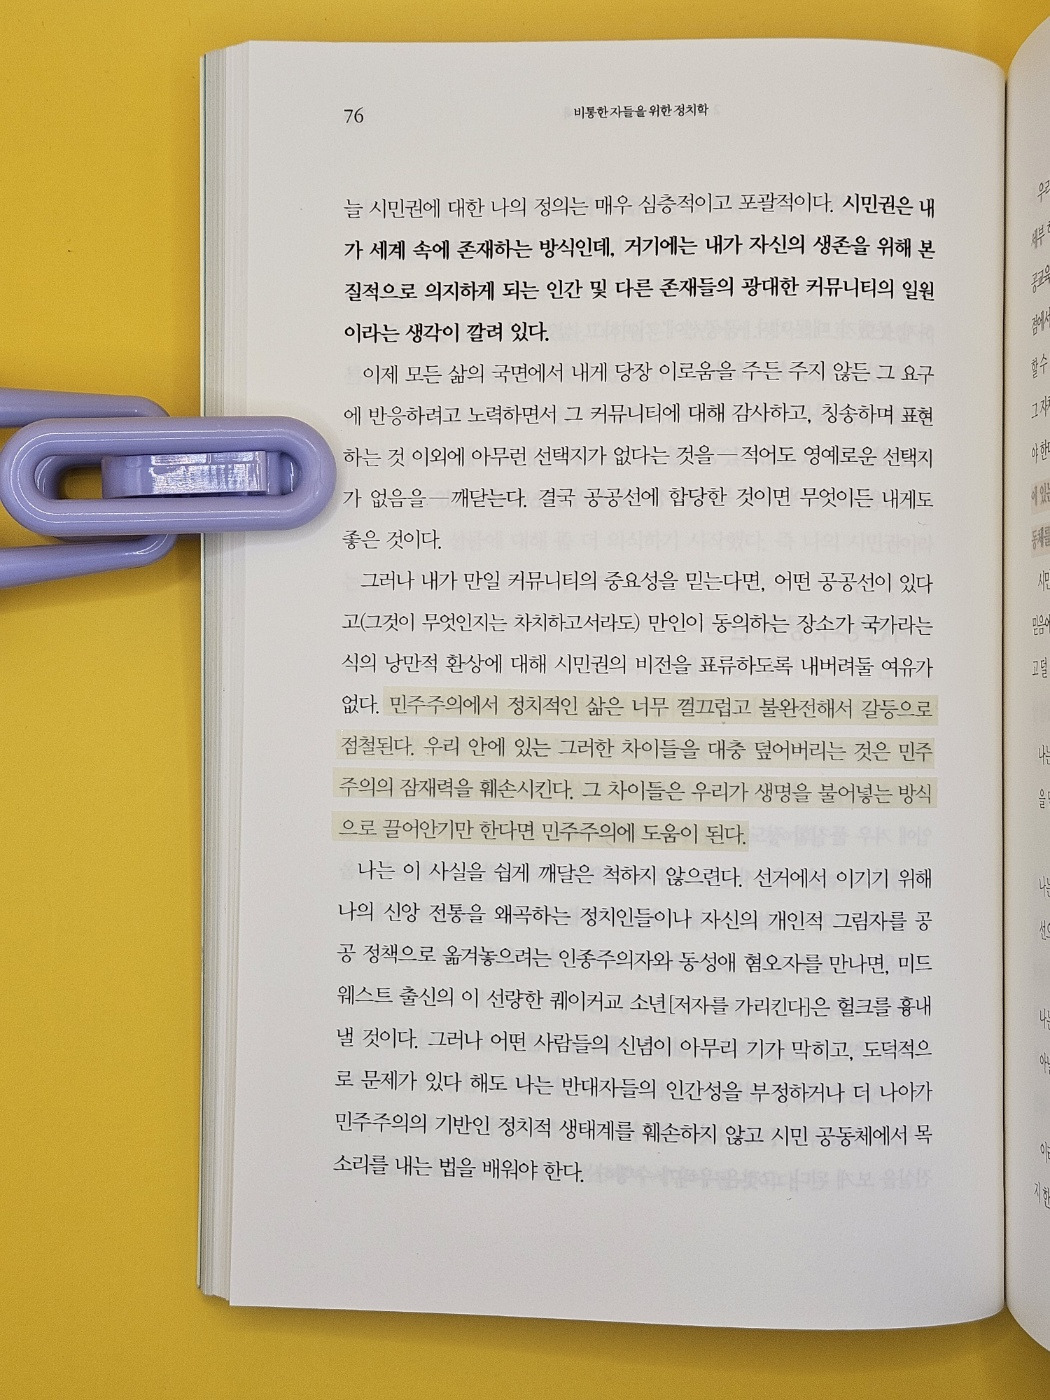 76
비통한 자들을 위한 정치학
늘 시민권에 대한 나의 정의는 매우 심층적이고 포괄적이다. 시민권은 내
가 세계 속에 존재하는 방식인데, 거기에는 내가 자신의 생존을 위해 본
질적으로 의지하게 되는 인간 및 다른 존재들의 광대한 커뮤니티의 일원
이라는 생각이 깔려 있다.
이제 모든 삶의 국면에서 내게 당장 이로움을 주든 주지 않든 그 요구
에 반응하려고 노력하면서 그 커뮤니티에 대해 감사하고, 칭송하며 표현
하는 것 이외에 아무런 선택지가 없다는 것을—적어도 영예로운 선택지
가 없음을—깨닫는다. 결국 공공선에 합당한 것이면 무엇이든 내게도
좋은 것이다.
그러나 내가 만일 커뮤니티의 중요성을 믿는다면, 어떤 공공선이 있다
고(그것이 무엇인지는 차치하고서라도) 만인이 동의하는 장소가 국가라는
식의 낭만적 환상에 대해 시민권의 비전을 표류하도록 내버려둘 여유가
없다. 민주주의에서 정치적인 삶은 너무 껄끄럽고 불완전해서 갈등으로
점철된다. 우리 안에 있는 그러한 차이들을 대충 덮어버리는 것은 민주
주의의 잠재력을 훼손시킨다. 그 차이들은 우리가 생명을 불어넣는 방식
으로 끌어안기만 한다면 민주주의에 도움이 된다.
나는 이 사실을 쉽게 깨달은 척하지 않으련다. 선거에서 이기기 위해
나의 신앙 전통을 왜곡하는 정치인들이나 자신의 개인적 그림자를 공
공 정책으로 옮겨놓으려는 인종주의자와 동성애 혐오자를 만나면, 미드
웨스트 출신의 이 선량한 퀘이커교 소년[저자를 가리킨다]은 헐크를 흉내
낼 것이다. 그러나 어떤 사람들의 신념이 아무리 기가 막히고, 도덕적으
로 문제가 있다 해도 나는 반대자들의 인간성을 부정하거나 더 나아가
민주주의의 기반인 정치적 생태계를 훼손하지 않고 시민 공동체에서 목
소리를 내는 법을 배워야 한다.